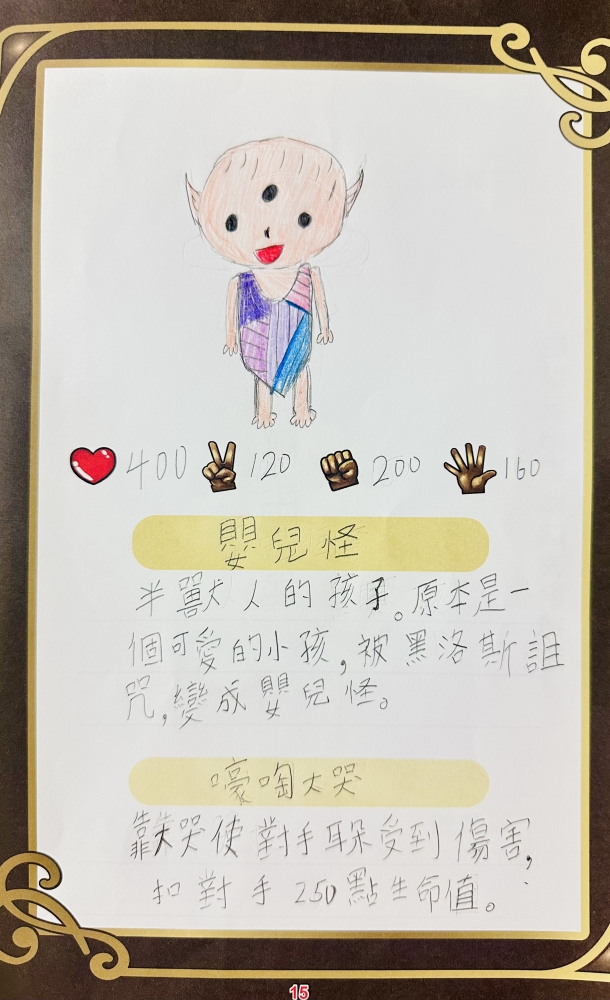 400 120 200 160
嬰兒怪
半獸人的孩子。原本是一
個可愛的小孩,被黑洛斯詛
咒,變成嬰兒怪。
嚎啕大哭
靠大哭使對手耳朵受到傷害,
扣對手250點生命值。
15